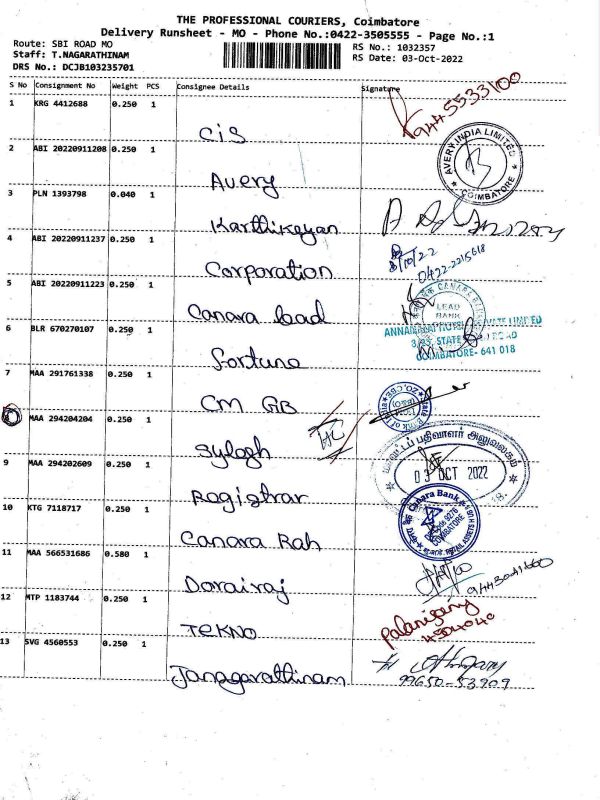 THE PROFESSIONAL COURIERS, Coimbatore
Delivery Runsheet - MO - Phone No.:0422-3505555 - Page No.:1
Route: SBI ROAD MO
RS No.: 1032357
Staff: T.NAGARATHINAM
RS Date: 03-Oct-2022
DRS No.: DCJB103235701
S No Consignment No Weight PCS Consignee Details Signature
1 KRG 4412688 0.250 1
94455 33100
Cis
2 ABI 20220911208 0.250 1
AVERY INDIA LIMITED
COIMBATORE
Avery
3 PLN 1393798 0.040 1
Karthikeyan
4 ABI 20220911237 0.250 1
3/10/22
0422-2215618
Corporation
5 ABI 20220911223 0.250 1
CANARA BANK
LEAD
BANK
Canara lead
ANNAMALAI HOTELS PRIVATE LIMITED
COIMBATORE- 641 018
6 BLR 670270107 0.250 1
Fortune
7 MAA 291761338 0.250 1
State Bank of India
ZO, CBE
CM GB
8 MAA 294204204 0.250 1
மாவட்டப் பதிவாளர் அலுவலகம்
Sylogh
9 MAA 294202609 0.250 1
03 OCT 2022
Registrar
10 KTG 7118717 0.250 1
Canara Bank
COIMBATORE
Canara Rah
11 MAA 566531686 0.580 1
Dorairaj
12 MTP 1183744 0.250 1
Palanisamy
4504040
TEKNO
13 SVG 4560553 0.250 1
99650-53909
Janagarathinam